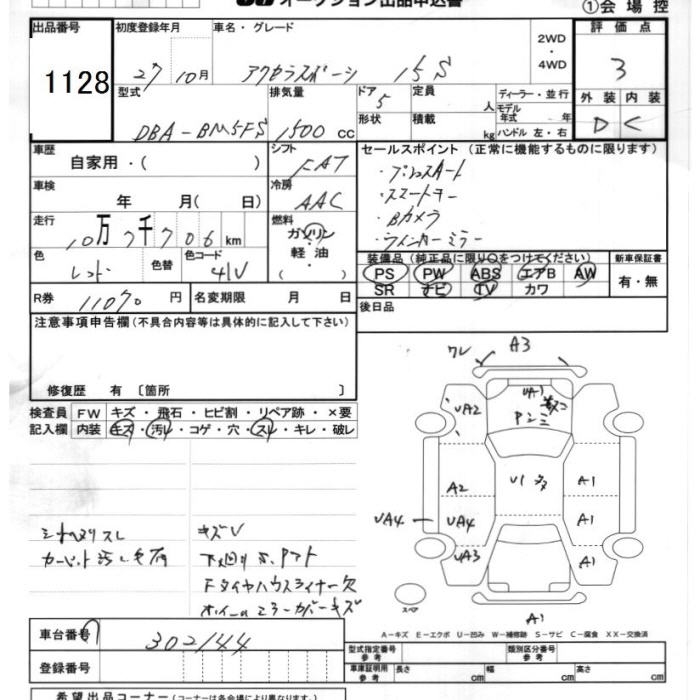 オークション出品申込書
①会場控
出品番号 1128
初度登録年月 27 10月
車名・グレード アクセラスポーツ 15S
2WD・4WD
評価点 3
型式 DBA-BM5FS
排気量 1500 cc
ドア 5
形状
定員 人
積載 kg
ディーラー・並行
モデル年式 年
ハンドル 左・右
外装 内装
D C
車歴 自家用・( )
シフト FAT
車検 年 月( 日)
冷房 AAC
走行 10万7千706km
燃料 ガソリン・軽油・( )
色 レッド
色替
色コード 41V
R券 11070 円
名変期限 月 日
セールスポイント (正常に機能するものに限ります)
・プッシュスタート
・スマートキー
・Bカメラ
・ウインカーミラー
装備品 (純正品に限り○をつけてください)
PS PW ABS エアB AW
SR ナビ TV カワ
新車保証書 有・無
後日品
注意事項申告欄(不具合内容等は具体的に記入して下さい)
修復歴 有 〔箇所 〕
検査員記入欄
FW キズ・飛石・ヒビ割・リペア跡・×要
内装 キズ・汚れ・コゲ・穴・スレ・キレ・破レ
カーペット汚れ
キズV
Fタイヤハウスライナー欠
ホイールミラーカバーキズ
ワレ A3
UA1
UA2
A2
U1
A1
UA4
UA4
A1
UA3
A1
スペア
A1
A-キズ E-エクボ U-凹み W-補修跡 S-サビ C-腐食 XX-交換済
車台番号 302144
登録番号
型式指定番号 参考
類別区分番号 参考
車庫証明用 参考 長さ cm 幅 cm 高さ cm
希望出品コーナー (コーナーは各会場により異なります)